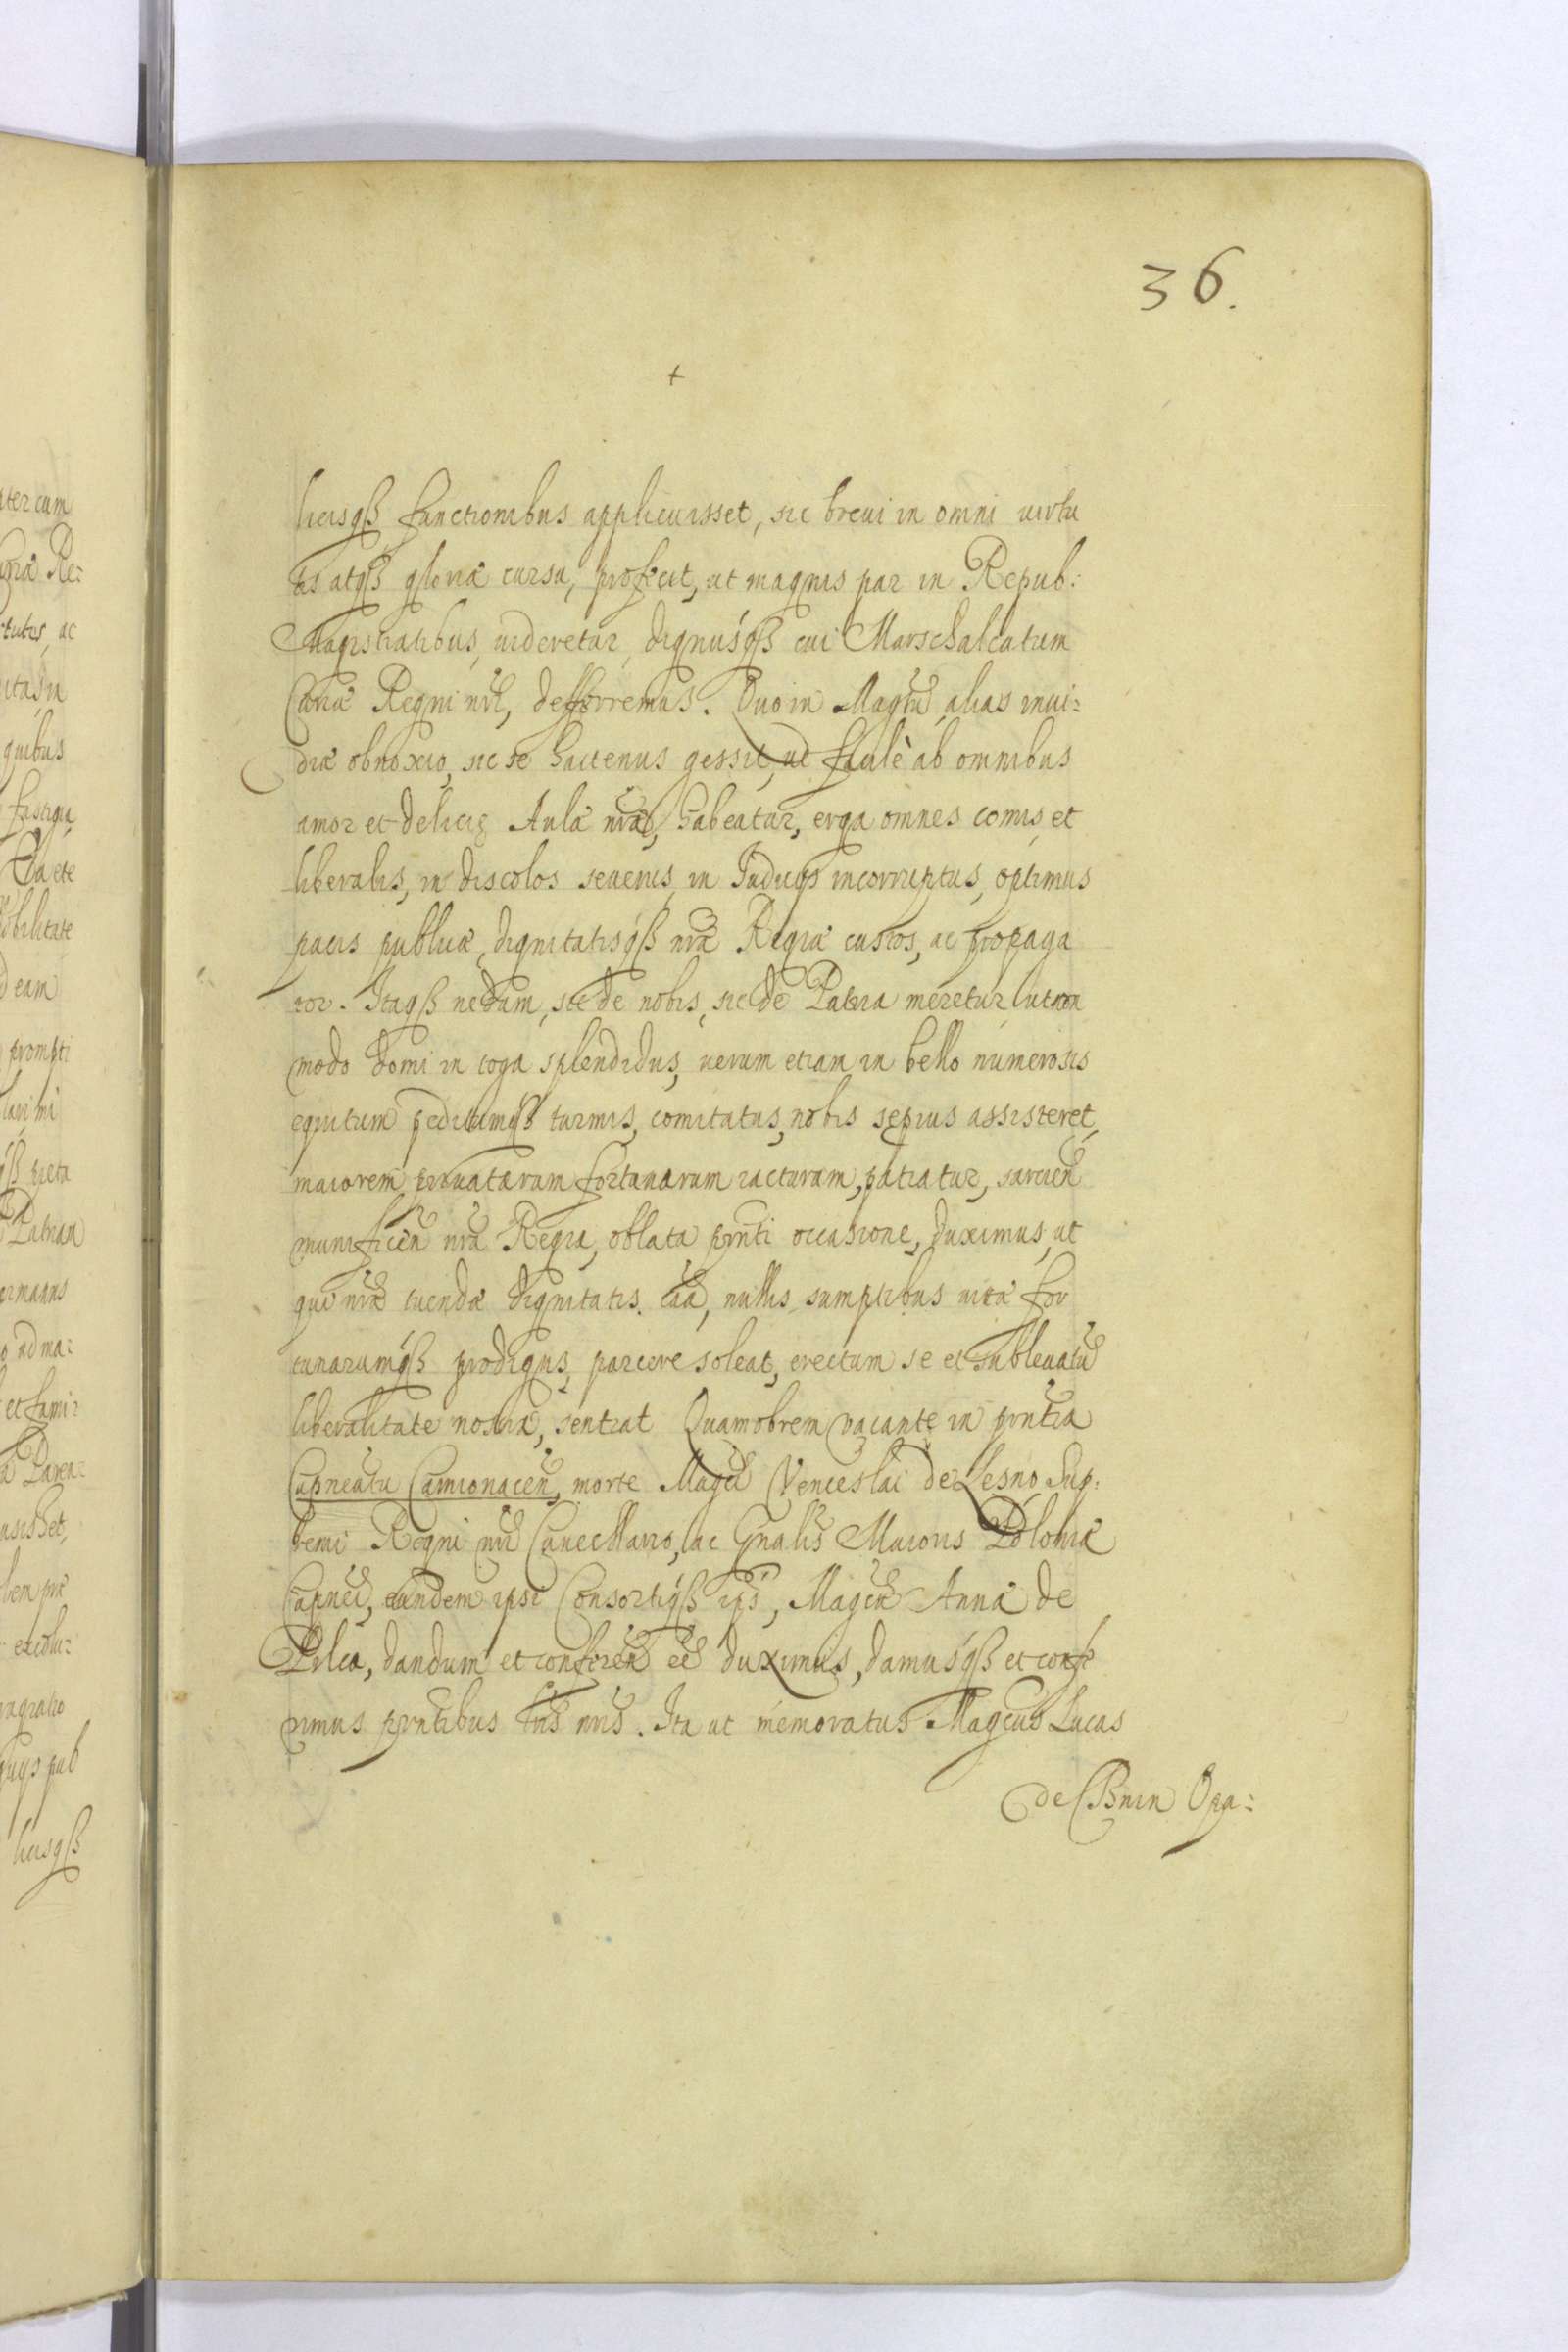 36.
+
licisqß functionibus applicuisset, sic breui in omni virtu
tis atqß gloriæ cursu, profecit, ut magnis par in Repub:
Magistratibus, uideretur, dignusqß cui Marschalcatum
Curiæ Regni nri, defferremus. Quo in Magtu, alias inui=
diæ obnoxio, sic se hactenus gessit, ut facilè ab omnibus
amor et deliciæ Aulæ nræ, habeatur, erga omnes comis et
liberalis, in discolos seuerus, in Iudicijs incorruptus, optimus
pacis publicæ, dignitatisqß nræ Regiæ custos, ac propaga
tor. Itaqß nedum, sic de nobis, sic de Patria meretur, ut non
modo domi in toga splendidus, uerum etiam in bello numerosis
equitum peditumqß turmis, comitatus, nobis sepius assisteret,
maiorem priuatarum fortunarum iacturam, patiatur, sarcien
munificen nra Regia, oblata pnti occasione, duximus, ut
qui nræ tuendæ dignitatis caa, nullis sumptibus uitæ for
tunarumqß prodigus, parcere soleat, erectum se et subleuatu
liberalitate nostra, sentiat Quamobrem vacante in pntia
Capneatu Camionacen, morte Magci Venceslai de Lesno Sup:
remi Regni nri Cancellario, ac Gnalis Maioris Poloniæ
Capnei, eundem ipsi Consortiqß ips, Magcæ Annæ de
Pilca, dandum et conferen ee duximus, damusqß et confe
rimus pntibus lris nris. Ita ut memoratus Magcus Lucas
de Bnin Opa=